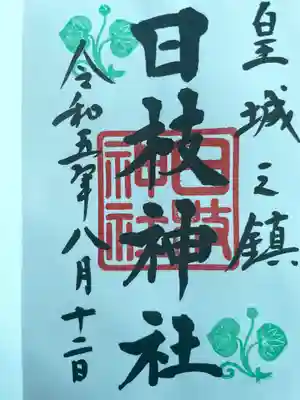 皇城之鎮
日枝神社
日枝神社
令和五年八月十二日